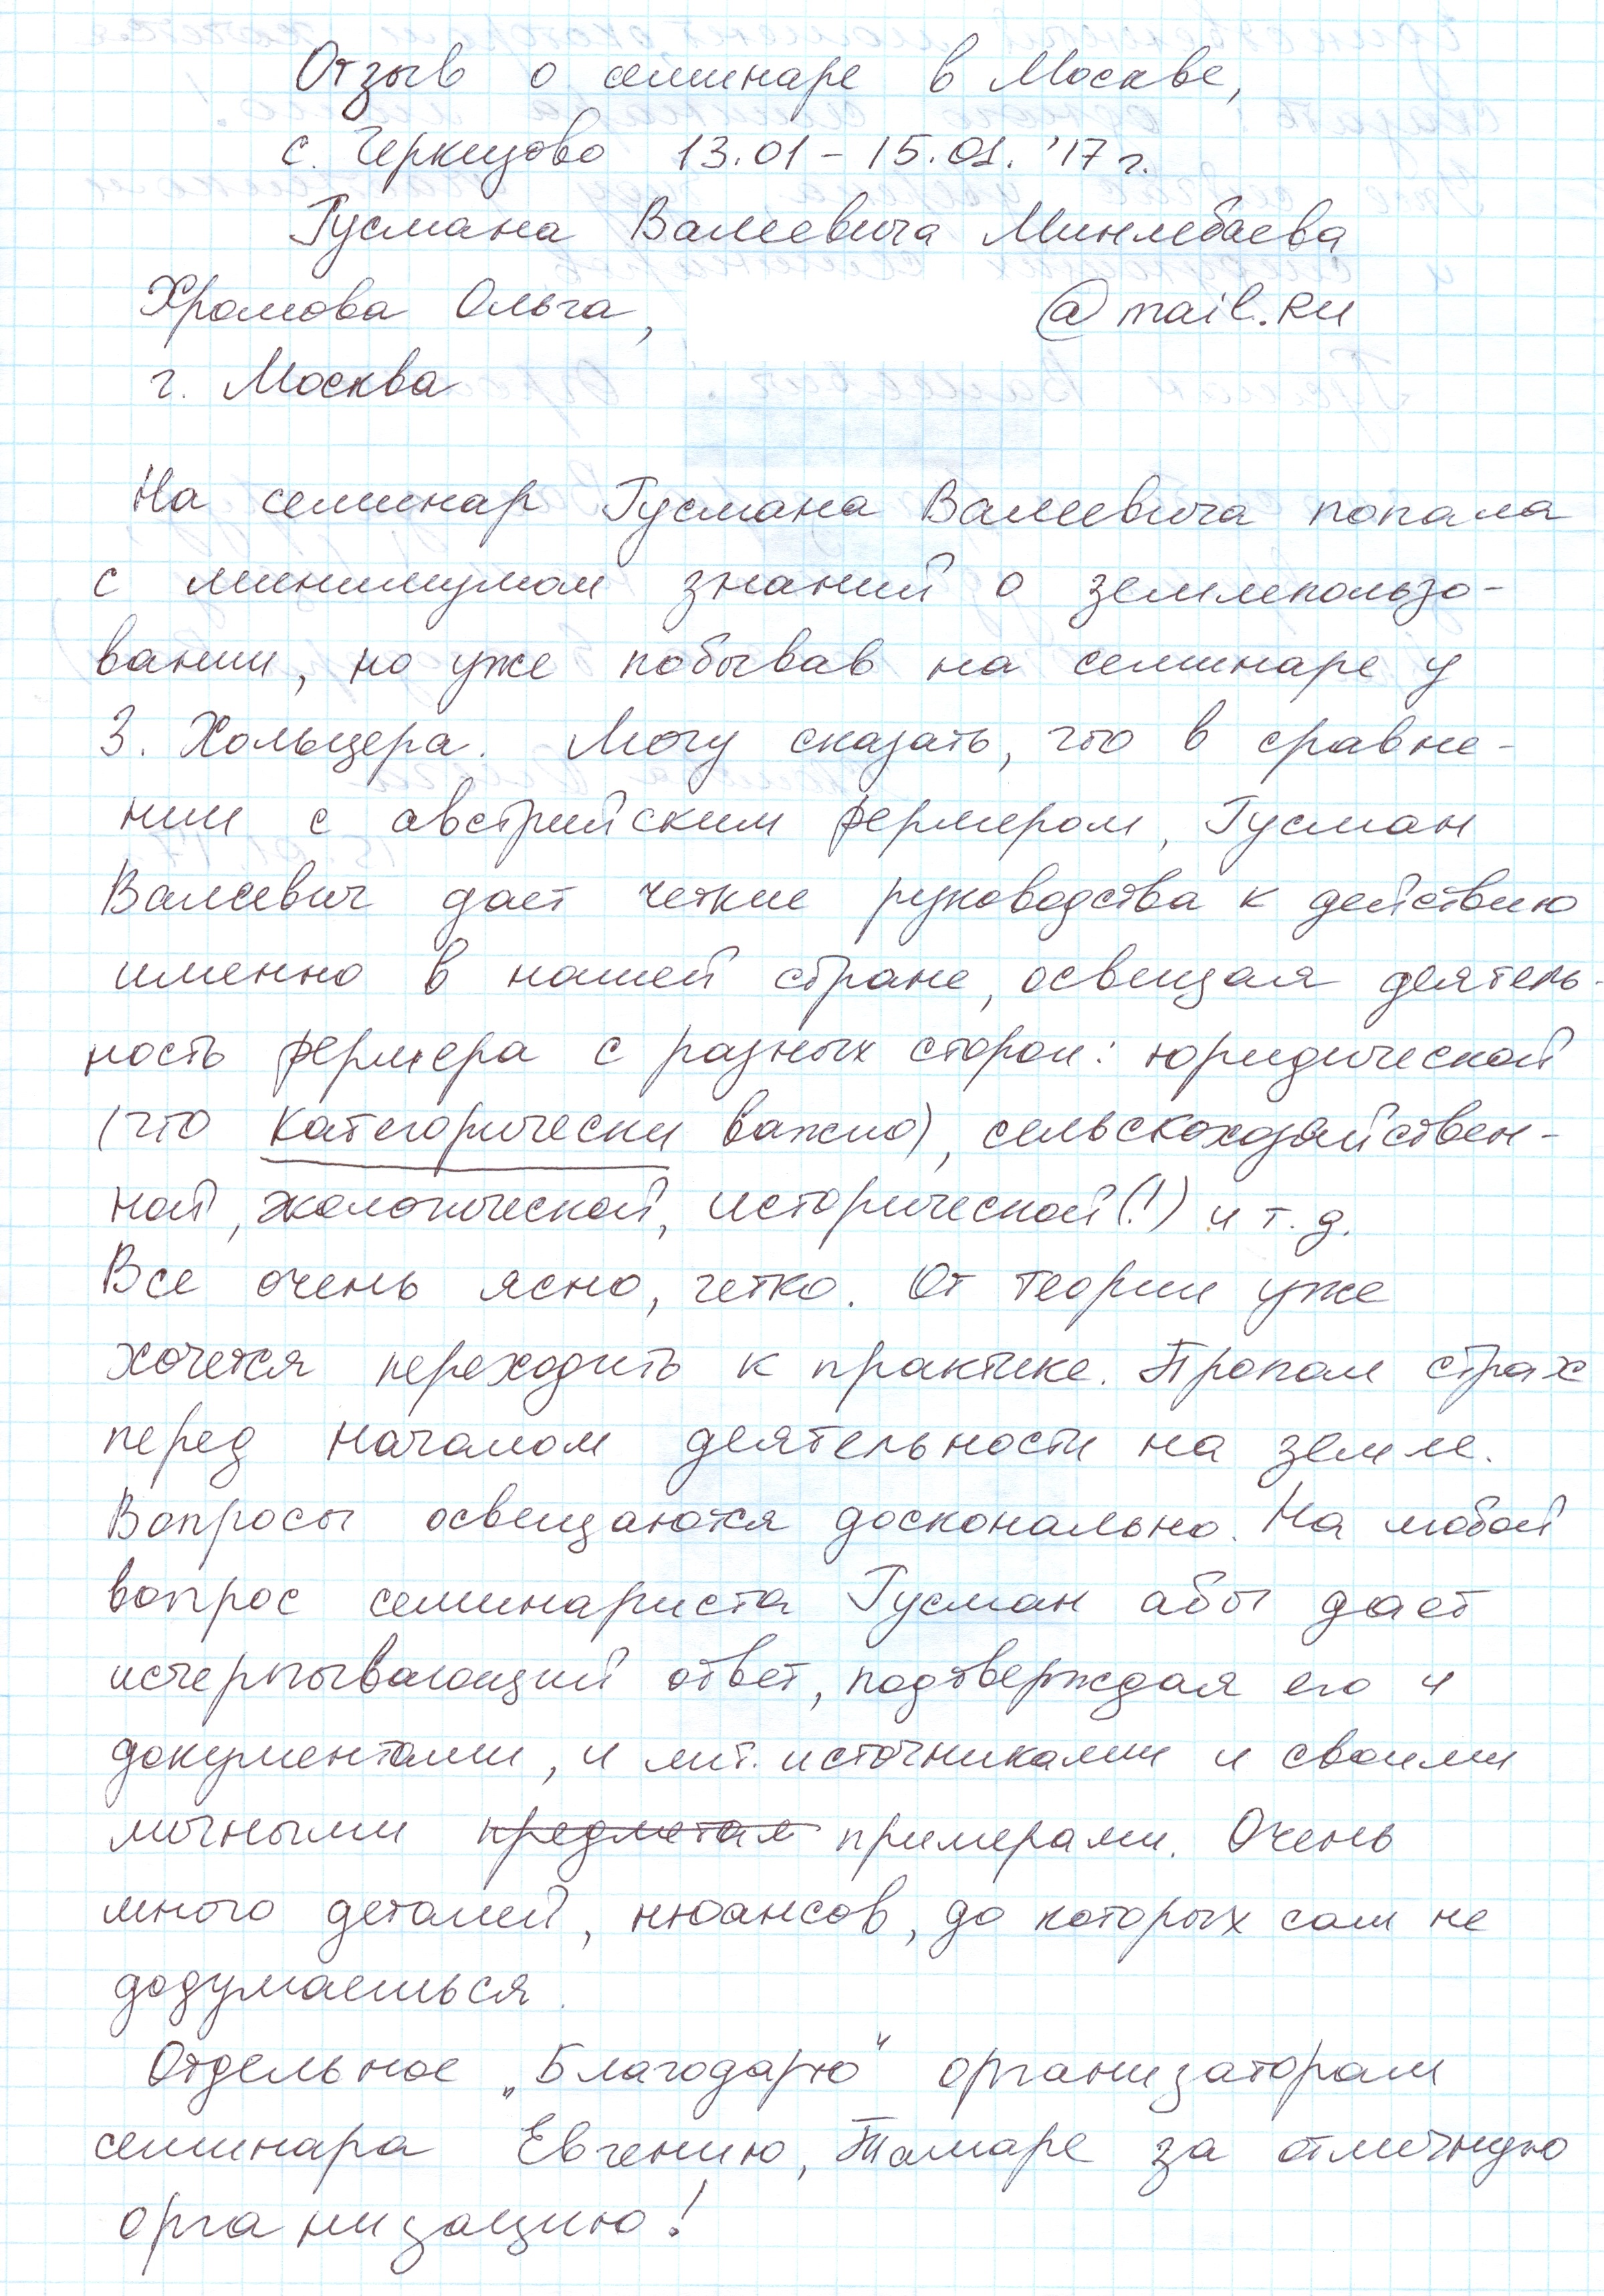 Отзыв о семинаре в Москве,
с. Черкизово 13.01 – 15.01. '17 г.
Гусмана Валеевича Минлебаева
Хромова Ольга, @mail.ru
г. Москва
На семинар Гусмана Валеевича попала
с минимумом знаний о землепользо-
вании, но уже побывав на семинаре у
З. Хольцера. Могу сказать, что в сравне-
нии с австрийским фермером, Гусман
Валеевич дает четкие руководства к действию
именно в нашей стране, освещая деятель-
ность фермера с разных сторон: юридической
(что категорически важно), сельскохозяйствен-
ной, экологической, исторической(!) и т.д.
Все очень ясно, четко. От теории уже
хочется переходить к практике. Пропал страх
перед началом деятельности на земле.
Вопросы освещаются досконально. На любой
вопрос семинариста Гусман абы дает
исчерпывающий ответ, подтверждая его и
документами, и лит. источниками и своими
личными предметам примерами. Очень
много деталей, нюансов, до которых сам не
додумаешься.
Отдельное „Благодарю" организаторам
семинара Евгению, Тамаре за отличную
организацию!